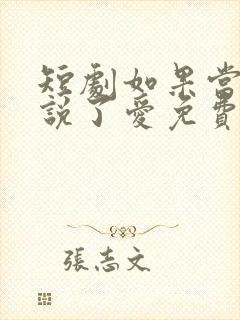 短劇如果當
說了愛免費
張志文